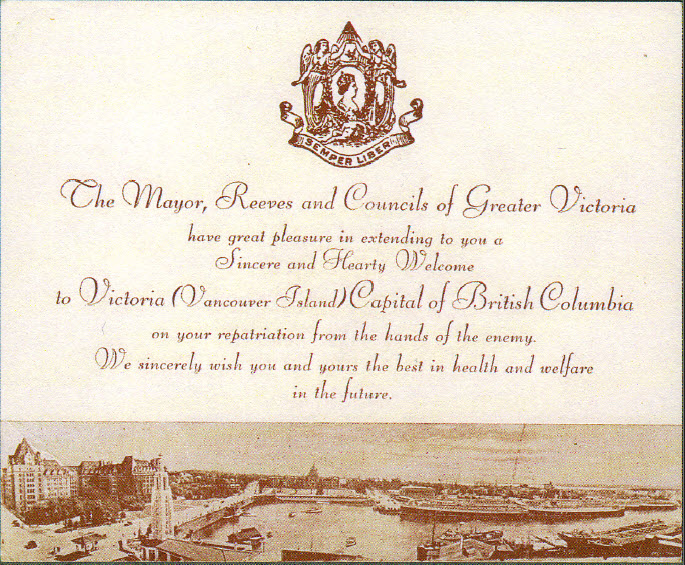 SEMPER LIBER
The Mayor, Reeves and Councils of Greater Victoria
have great pleasure in extending to you a
Sincere and Hearty Welcome
to Victoria (Vancouver Island) Capital of British Columbia
on your repatriation from the hands of the enemy.
We sincerely wish you and yours the best in health and welfare
in the future.